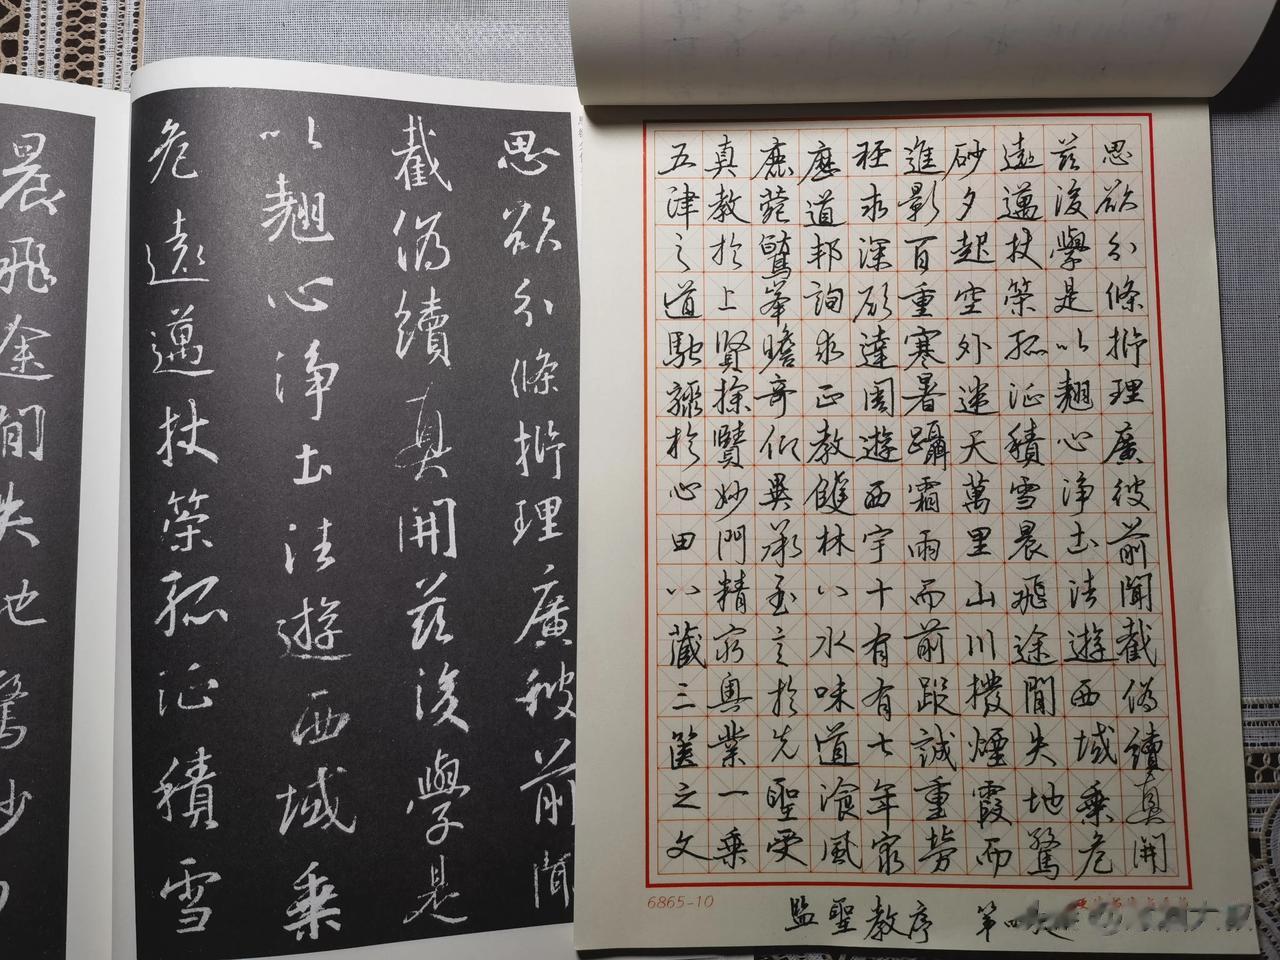 思欲分條析理廣彼前聞
截偽續真開茲後學是
以翹心淨土法遊西域乘
危遠邁杖策孤征積雪
晨飛途間失地驚砂夕
思欲分條析理廣彼前聞截偽續真開
茲後學是以翹心淨土法遊西域乘危
遠邁杖策孤征積雪晨飛途間失地驚
砂夕起空外迷天萬里山川撥煙霞而
進影百重寒暑躡霜雨而前蹤誠重勞
輕求深願達周遊西宇十有有七年窮
歷道邦詢求正教雙林八水味道飡風
鹿菀鷲峯瞻奇仰異承至言於先聖受
真教於上賢探賾妙門精窮奧業一乘
五津之道馳驟於心田八藏三篋之文
6865-10
监聖教序 第四